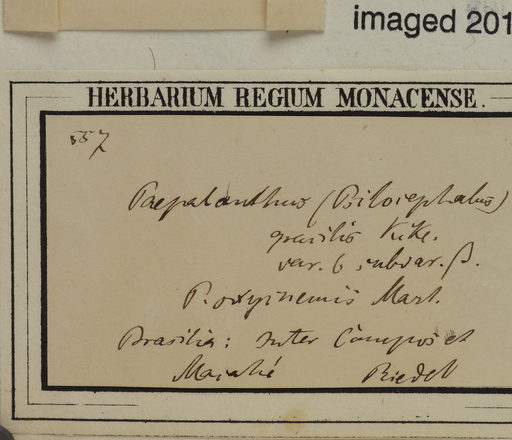 imaged 201
HERBARIUM REGIUM MONACENSE.
557
Paepalanthus (Psilocephalus)
gracilis Kcke.
var. b subvar. β.
P. oxyinemis Mart.
Brasilia: inter Campos et
Macahé Riedel